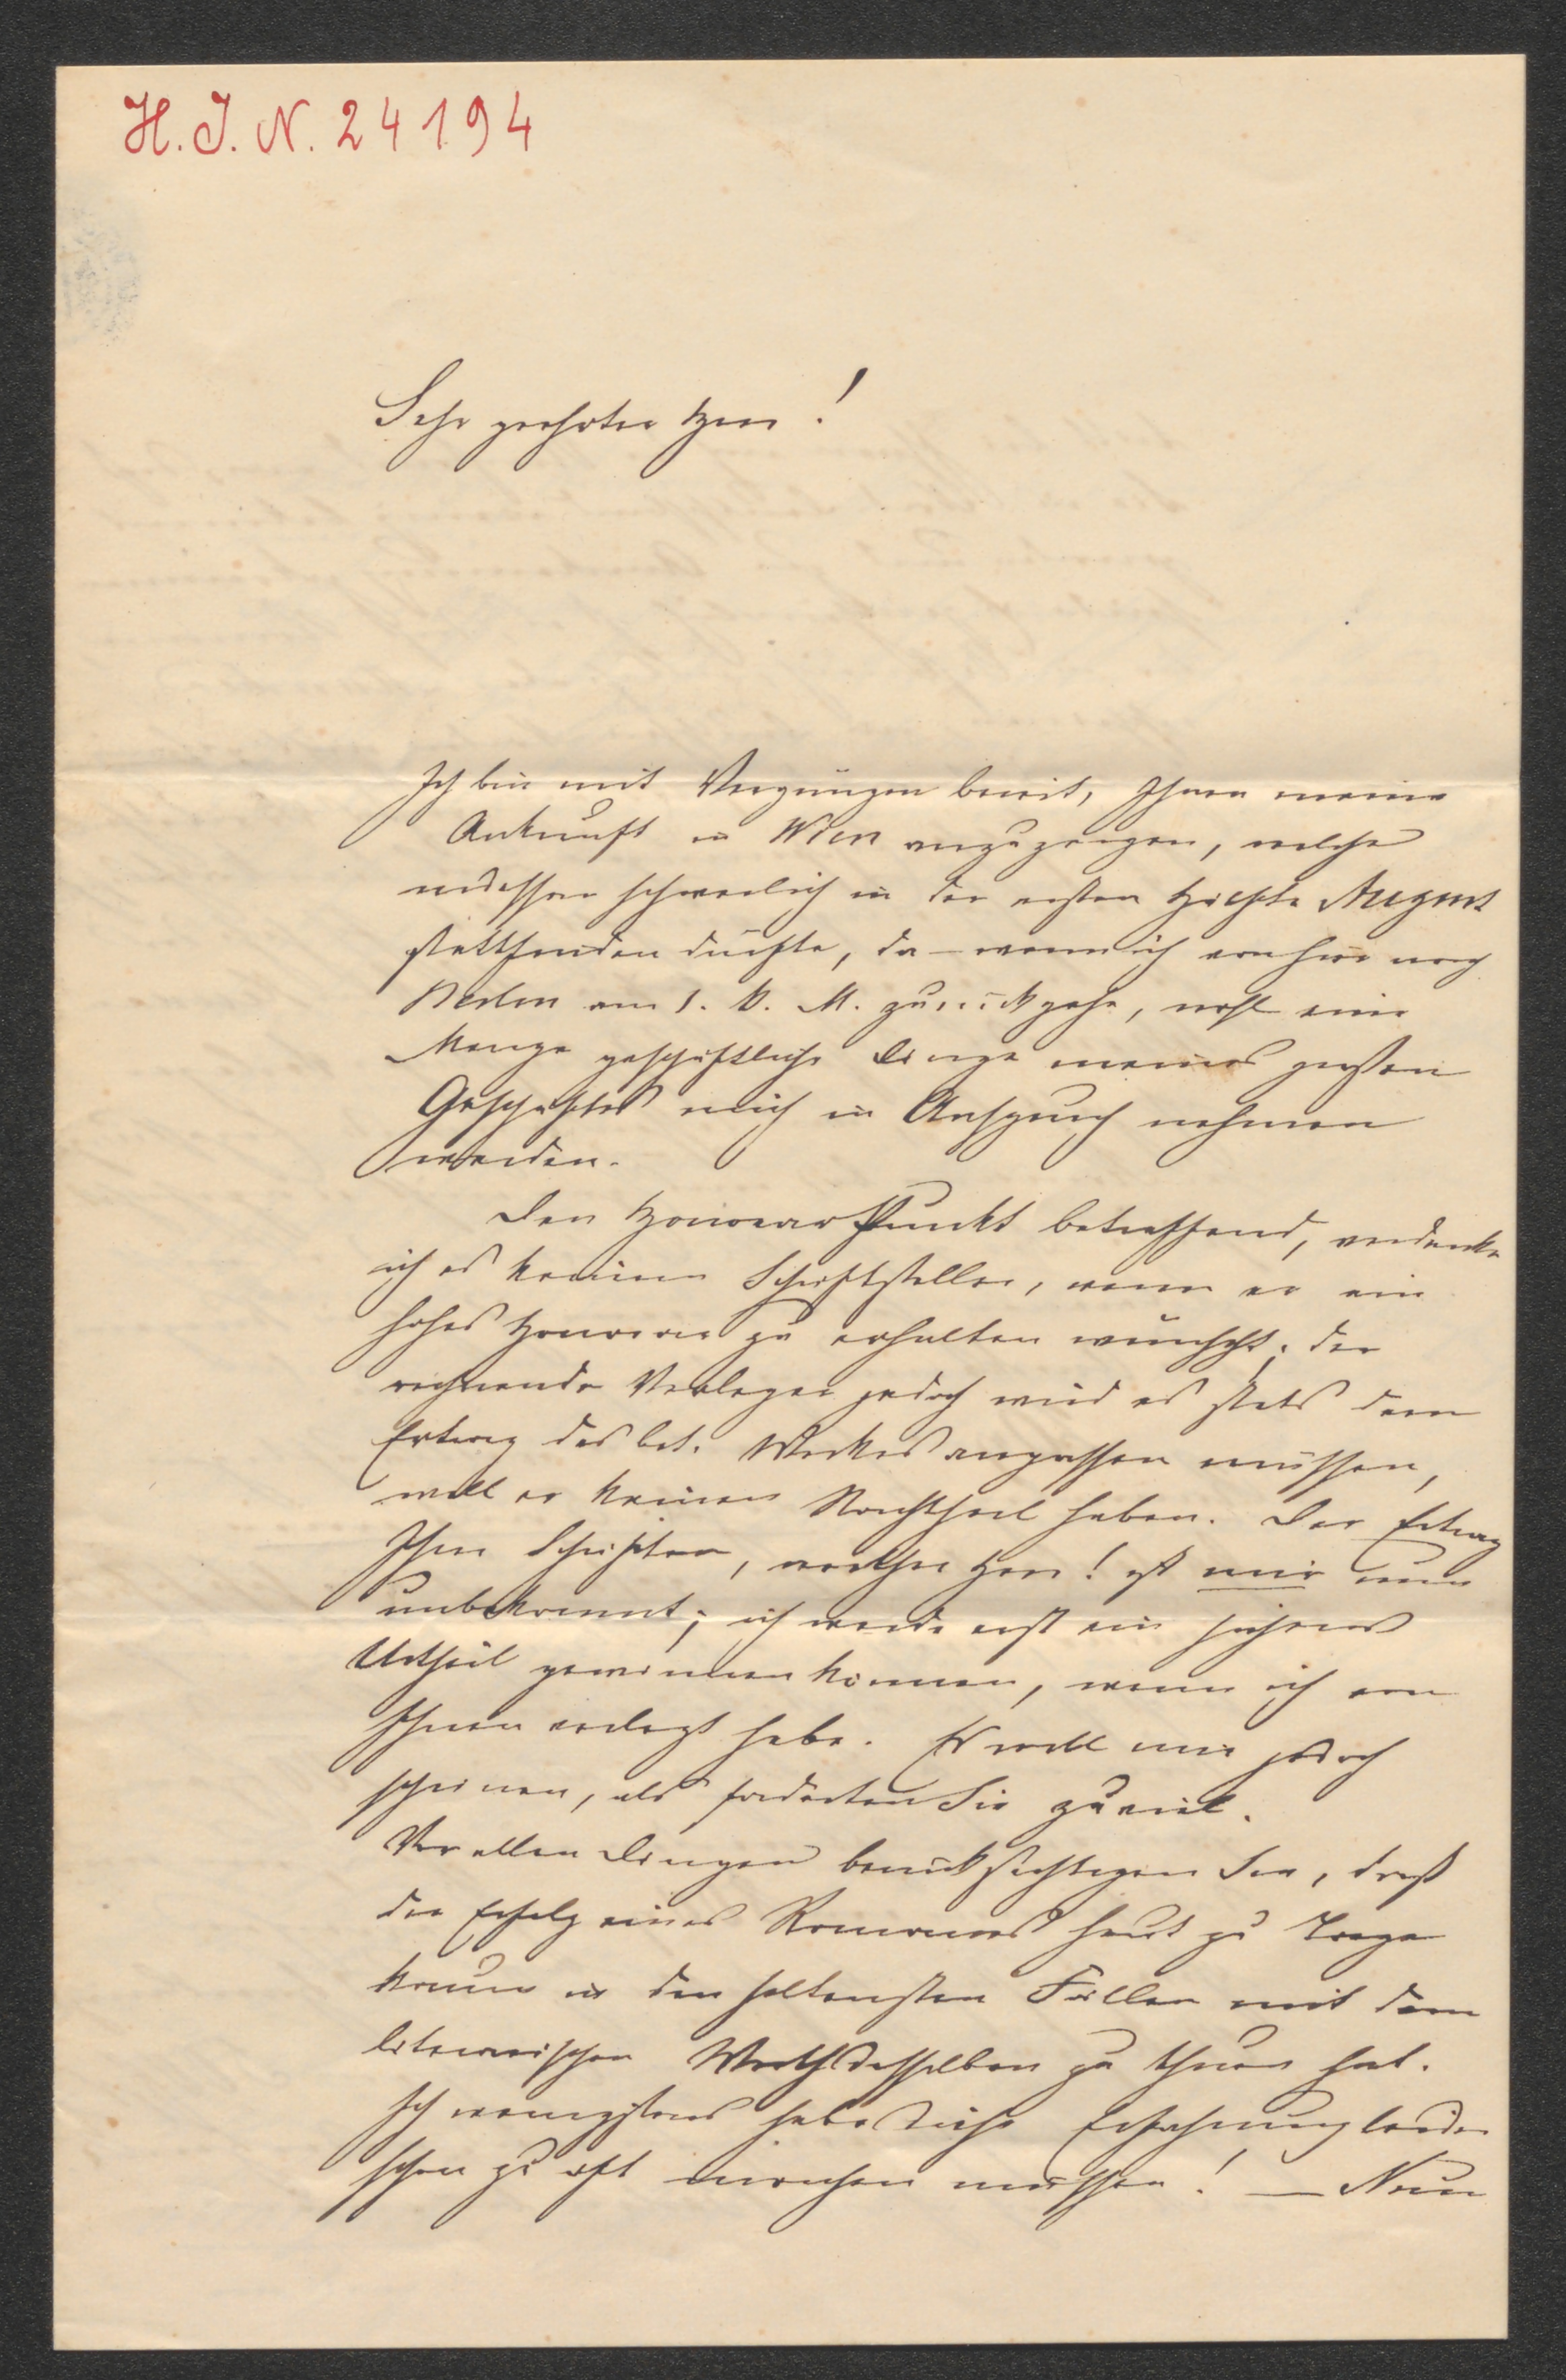 H. J. N. 24194
Sehr geehrter Herr!
Ich bin mit Vergnügen bereit, Ihnen meine
Ankunft in Wien anzuzeigen, welche
indessen schwerlich in der ersten Hälfte August
stattfinden dürfte, da – wenn ich von hier nach
Berlin am 1. k. M. zurückgehe, wohl eine
Menge geschäftliche Dinge meines großen
Geschäftes mich in Anspruch nehmen
werden.
Den Honorar Punkt betreffend, verdenke
ich es keinem Schriftsteller, wenn er ein
hohes Honorar zu erhalten wünscht; der
rechnende Verleger jedoch wird es stets dem
Ertrag des bet. Werkes anpassen müssen,
will er keinen Nachtheil haben. Der Ertrag
Ihrer Schriften, werther Herr! ist mir nun
unbekannt; ich werde erst ein sicheres
Urtheil gewinnen können, wenn ich von
Ihnen verlegt habe. Es will mir jedoch
scheinen, als forderten Sie zuviel.
Vor allen Dingen berücksichtigen Sie, daß
der Erfolg eines Romanes heut zu Tage
kaum in den seltensten Fällen mit dem
literarischen Werth desselben zu thuen hat.
Ich wenigstens habe diese Erfahrung leider
schon zu oft machen müssen! — Nun